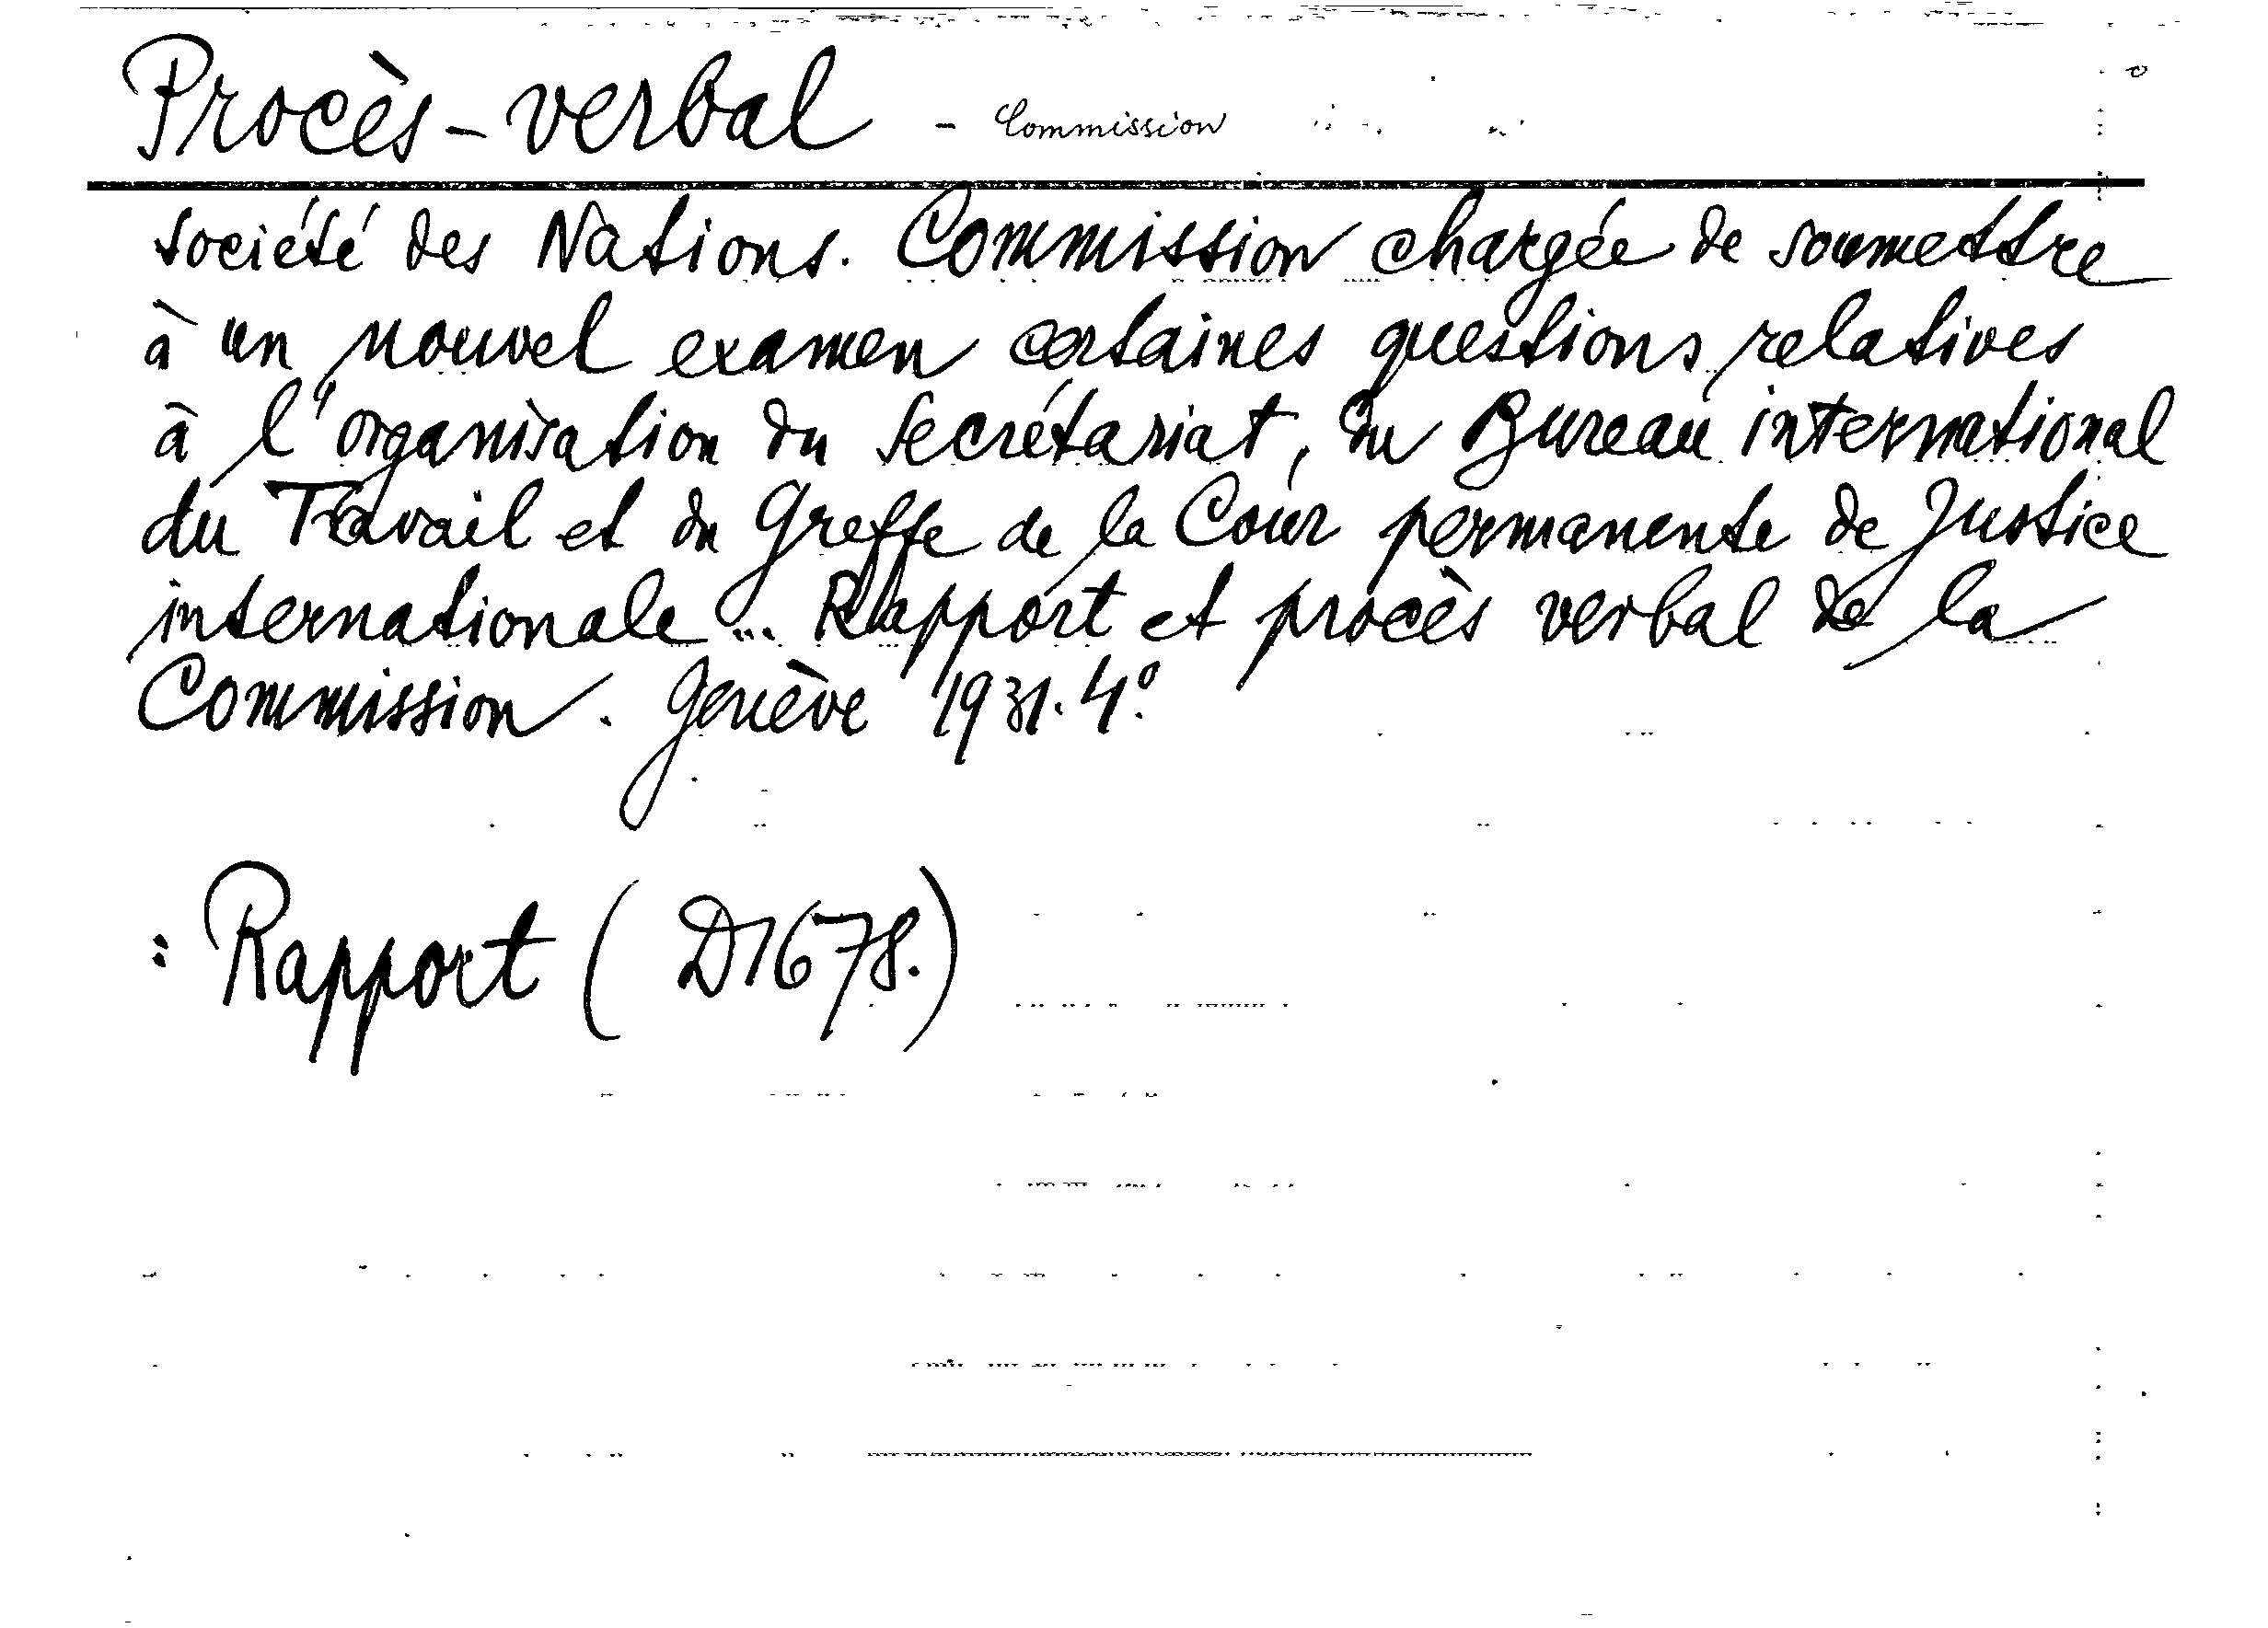 Procès-verbal - Commission
Société des Nations. Commission chargée de soumettre
à un nouvel examen certaines questions relatives
à l'organisation du Secrétariat, du Bureau international
du Travail et du Greffe de la Cour permanente de Justice
internationale... Rapport et procès verbal de la
Commission. Genève 1931. 4º.
: Rapport (D1678.)